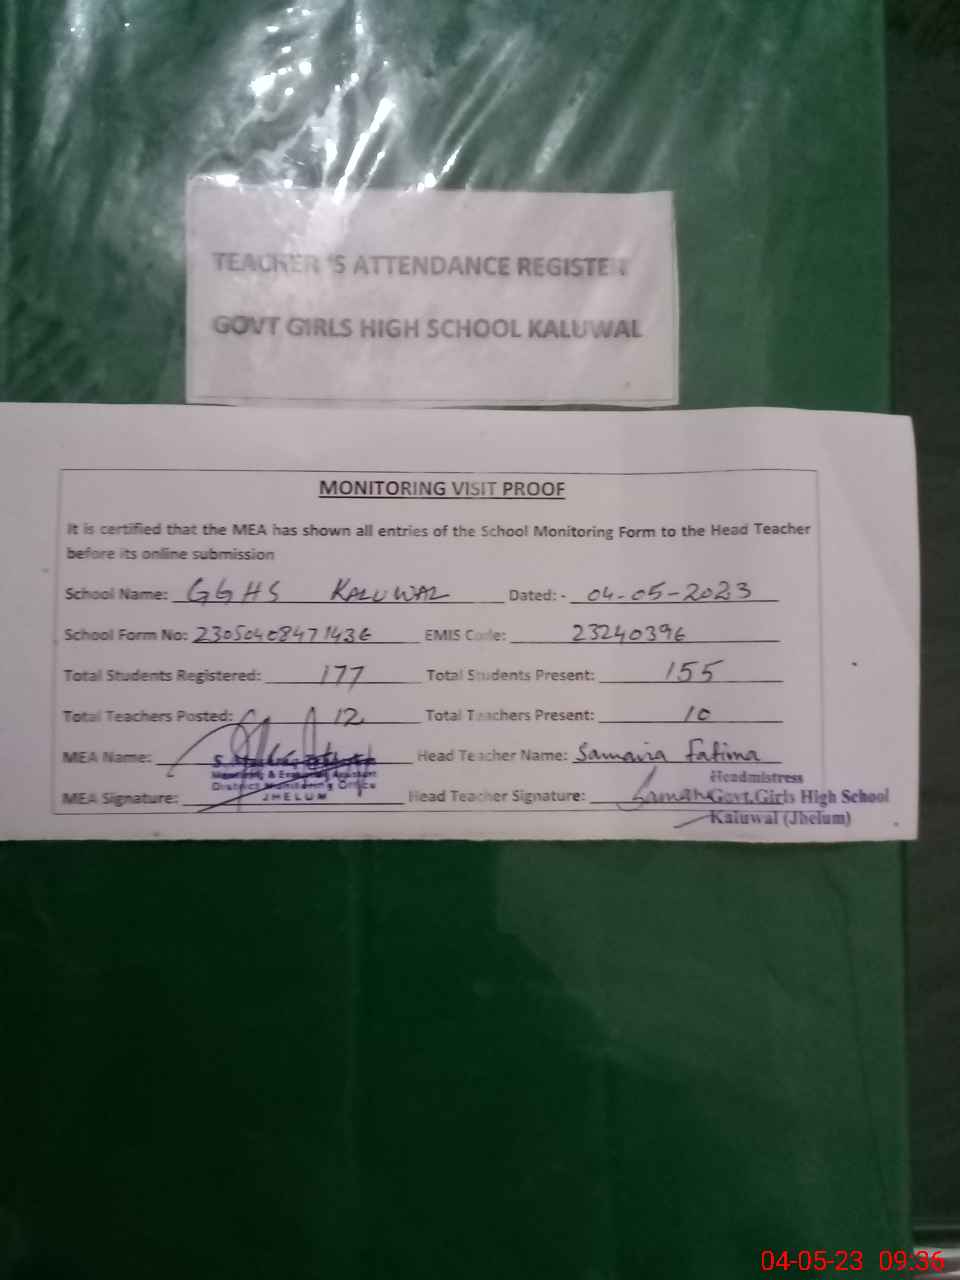 TEACHER 'S ATTENDANCE REGISTER
GOVT GIRLS HIGH SCHOOL KALUWAL
MONITORING VISIT PROOF
It is certified that the MEA has shown all entries of the School Monitoring Form to the Head Teacher
before its online submission
School Name: GGHS KALUWAL Dated: - 04-05-2023
School Form No: 23050408471436 EMIS Code: 23240396
Total Students Registered: 177 Total Students Present: 155
Total Teachers Posted: 12 Total Teachers Present: 10
MEA Name: Head Teacher Name: Samaira Fatima
Monitoring & Evaluation Assistant
District Monitoring Office
JHELUM
MEA Signature: Head Teacher Signature:
Headmistress
Govt.Girls High School
Kaluwal (Jhelum)
04-05-23 09:36